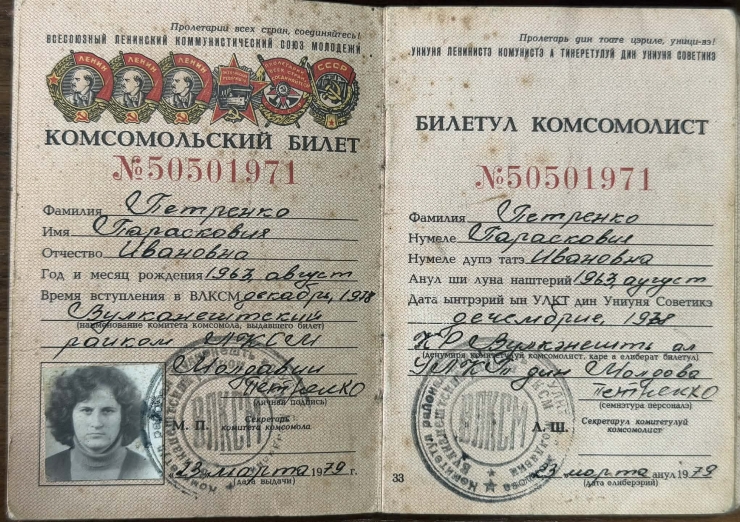 Пролетарии всех стран, соединяйтесь!
ВСЕСОЮЗНЫЙ ЛЕНИНСКИЙ КОММУНИСТИЧЕСКИЙ СОЮЗ МОЛОДЕЖИ
ЛЕНИН ЛЕНИН ЛЕНИН СССР
КОМСОМОЛЬСКИЙ БИЛЕТ
№50501971
Фамилия Петренко
Имя Парасковия
Отчество Ивановна
Год и месяц рождения 1963, август
Время вступления в ВЛКСМ декабрь, 1978
Вулканештский
(наименование комитета комсомола, выдавшего билет)
райком ЛКСМ
Молдавии
Петренко
(личной подпись)
М. П. Секретарь комитета комсомола
ВЛКСМ
23 марта 1979 г.
(дата выдачи)
Пролетарь дин тоате цэриле, уници-вэ!
УНИУНЯ ЛЕНИНИСТЭ КОМУНИСТЭ А ТИНЕРЕТУЛУЙ ДИН УНИУНЯ СОВЕТИКЭ
БИЛЕТУЛ КОМСОМОЛИСТ
№50501971
Фамилия Петренко
Нумеле Парасковия
Нумеле дупэ татэ Ивановна
Анул ши луна наштерий 1963, аугуст
Дата ынтрэрий ын УЛКТ дин Униуня Советикэ
дечембрие, 1978
КР Вулкэнешть ал
(денумиря комитетулуй комсомолист, каре а елиберат билетул)
УЛКТ дин Молдова
Петренко
(семнэтура персоналэ)
Л. Ш. Секретарул комитетулуй комсомолист
ВЛКСМ
23 марта анул 1979
(дата елиберэрий)
33